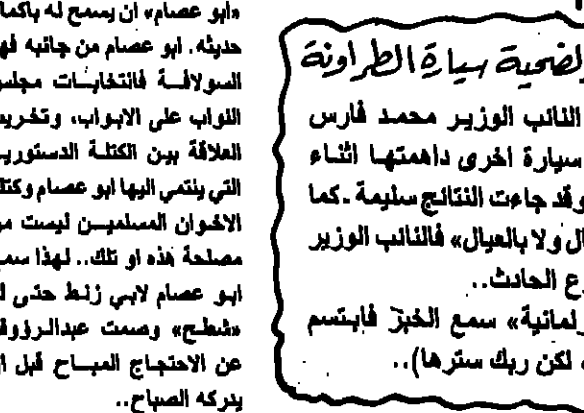 لضحية سيارة الطراونة
النائب الوزير محمد فارس
سيارة اخرى داهمتها اثناء
وقد جاءت النتائج سليمة - كما
ال ولا بالعيال» فالنائب الوزير
ع الحادث..
رلمانية» سمع الخبر فابتسم
لكن ربك سترها)..
«ابو عصام» ان يسمح له باكما
حديثه. ابو عصام من جانبه فه
السولافة فانتخابات مجلس
النواب على الابواب، وتخريب
العلاقة بين الكتلة الدستورية
التي ينتمي اليها ابو عصام وكتل
الاخوان المسلمين ليست من
مصلحة هذه او تلك.. لهذا سمح
ابو عصام لابي زنط حتى
«شطح» وصمت عبدالرؤوف
عن الاحتجاج المباح قبل ان
يدركه الصباح..